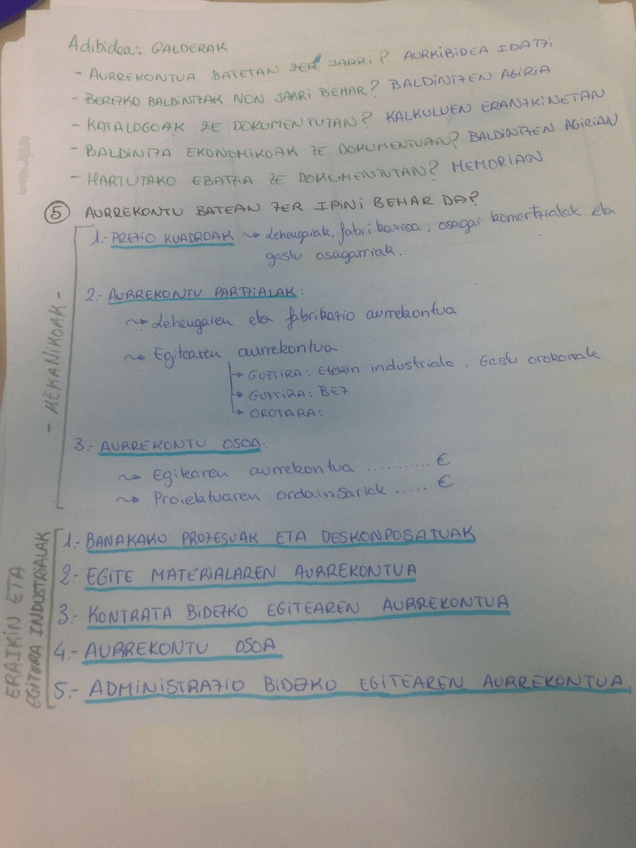 Adibidea: GALDERAK
- AURREKONTUA BATETAN ZER JARRI? AURKIBIDEA IDATZI
- BEREZKO BALDINTZAK NON JARRI BEHAR? BALDINTZEN AGIRIA
- KATALOGOAK ZE DOKUMENTUTAN? KALKULUEN ERANZKINETAN
- BALDINTZA EKONOMIKOAK ZE DOKUMENTUAN? BALDINTZEN AGIRIAN
- HARTUTAKO EBATZIA ZE DOKUMENTUTAN? MEMORIAN
5 AURREKONTU BATEAN ZER IPINI BEHAR DA?
- MEKANIKOAK -
1.- PREZIO KUADROAK ⇝ Lehengaiak, fabrikazioa, osagai komertzialak eta
gastu osagarriak.
2.- AURREKONTU PARTZIALAK:
⇝ Lehengaien eta fabrikazio aurrekontua
⇝ Egitearen aurrekontua
→ GUZTIRA: Etekin industriala, Gastu orokorrak
→ GUZTIRA: BEZ
→ OROTARA:
3.- AURREKONTU OSOA:
⇝ Egitearen aurrekontua .......... €
⇝ Proiektuaren ordainsariak ...... €
ERAIKIN ETA
EGITURA INDUSTRIALAK
1.- BANAKAKO PROZESUAK ETA DESKONPOSATUAK
2.- EGITE MATERIALAREN AURREKONTUA
3.- KONTRATA BIDEZKO EGITEAREN AURREKONTUA
4.- AURREKONTU OSOA
5.- ADMINISTRAZIO BIDEZKO EGITEAREN AURREKONTUA